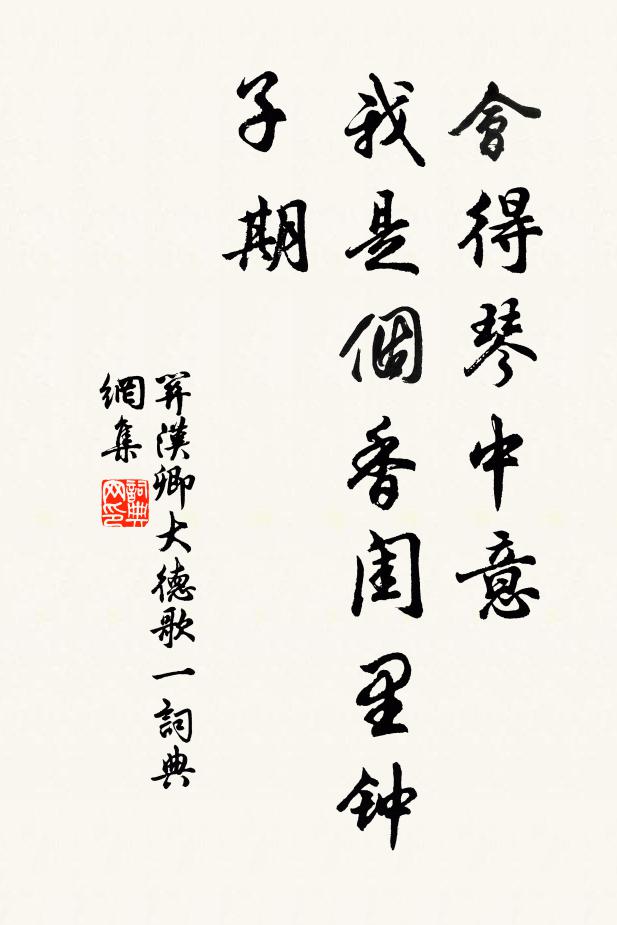 會得琴中意
我是個香閨里钟
子期
関漢卿大德歌一詞典
網集
詞典網印